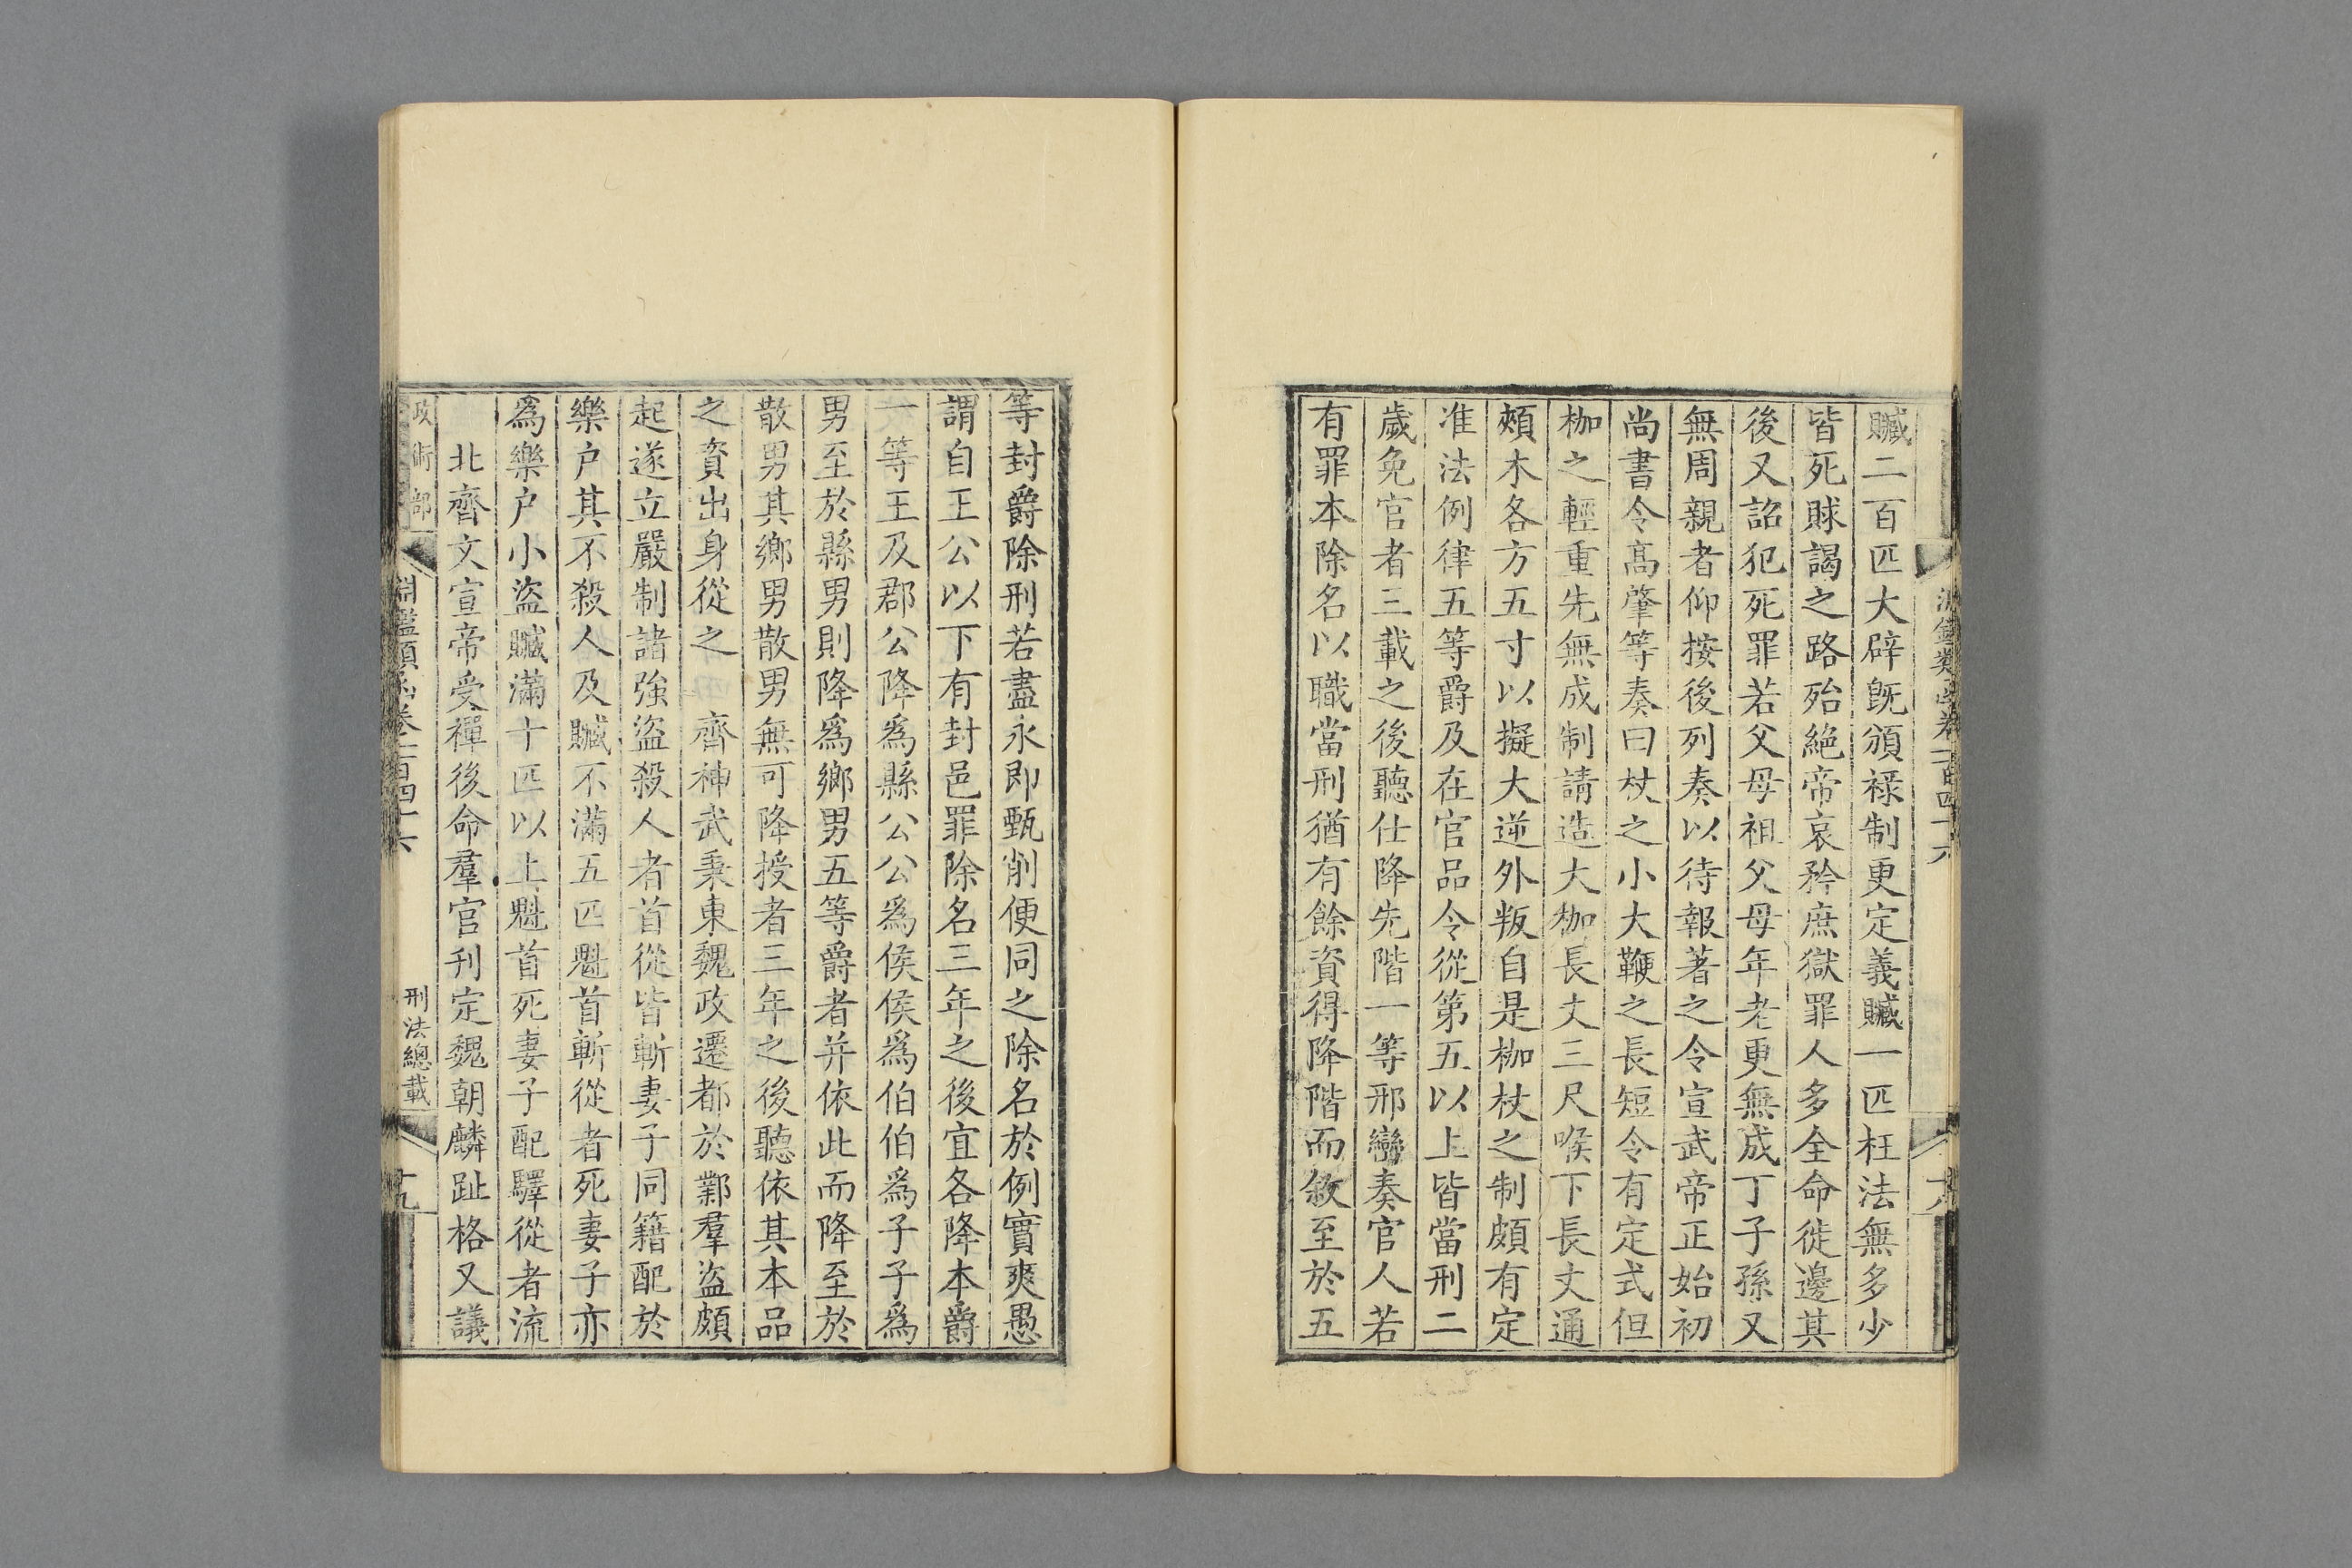 贓二百匹大辟既頒禄制更定義贓一匹枉法無多少
皆死賕謁之路殆絶帝哀矜庶獄罪人多全命徙邊其
後又詔犯死罪若父母祖父母年老更無成丁子孫又
無周親者仰按後列奏以待報著之令宣武帝正始初
尚書令高肇等奏曰杖之小大鞭之長短令有定式但
枷之輕重先無成制請造大枷長丈三尺喉下長丈通
頰木各方五寸以擬大逆外叛自是枷杖之制頗有定
准法例律五等爵及在官品令從第五以上皆當刑二
歲免官者三載之後聽仕降先階一等邢巒奏官人若
有罪本除名以職當刑猶有餘資得降階而敘至於五
等封爵除刑若盡永即甄削便同之除名於例實爽愚
謂自王公以下有封邑罪除名三年之後宜各降本爵
一等王及郡公降爲縣公公爲侯侯爲伯伯爲子子爲
男至於縣男則降爲鄉男五等爵者并依此而降至於
散男其鄉男散男無可降授者三年之後聽依其本品
之資出身從之 齊神武秉東魏政遷都於鄴羣盜頗
起遂立嚴制諸強盜殺人者首從皆斬妻子同籍配於
樂户其不殺人及贓不滿五匹魁首斬從者死妻子亦
爲樂户小盜贓滿十匹以上魁首死妻子配驛從者流
北齊文宣帝受禪後命羣官刊定魏朝麟趾格又議
政術部 淵鑑類函卷一百四十六 刑法總載 十九